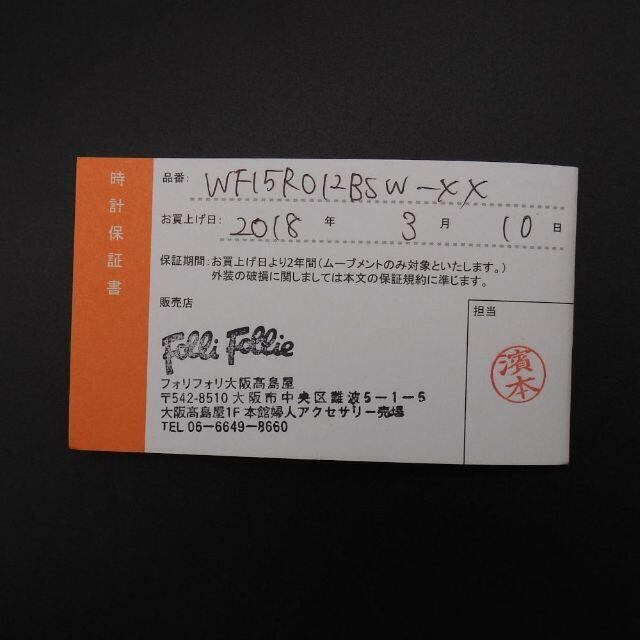 時計保証書
品番: WF15R012BSW-XX
お買上げ日: 2018 年 3 月 10 日
保証期間:お買上げ日より2年間(ムーブメントのみ対象といたします。)
外装の破損に関しましては本文の保証規約に準じます。
販売店
担当
Folli Follie
濱本
フォリフォリ大阪高島屋
〒542-8510 大阪市中央区難波5-1-5
大阪高島屋1F 本館婦人アクセサリー売場
TEL 06-6649-8660